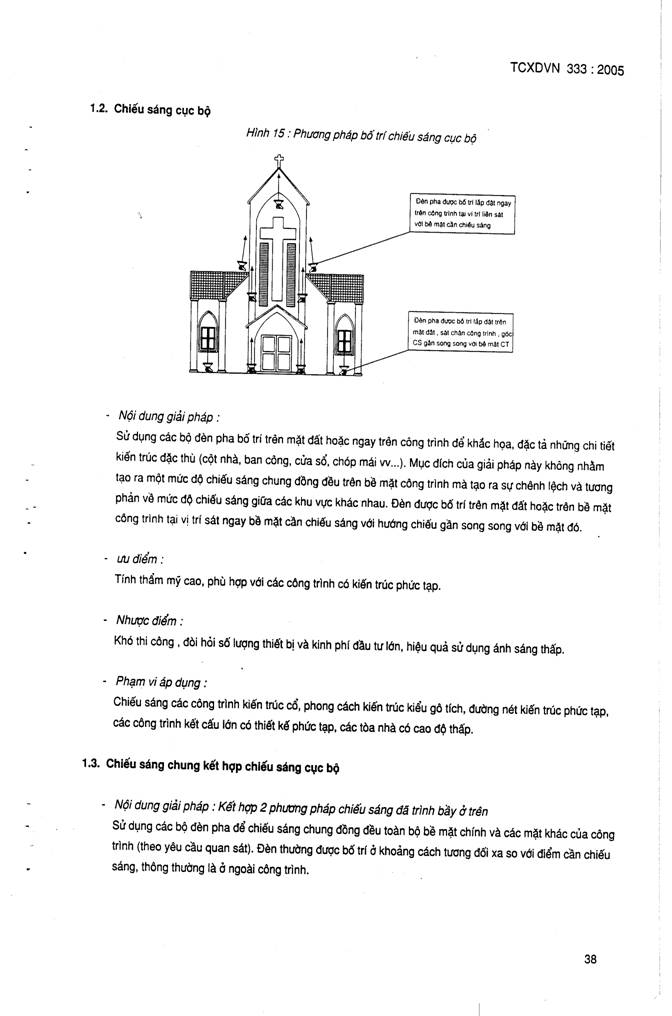 TCXDVN 333 : 2005
1.2. Chiếu sáng cục bộ
Hình 15 : Phương pháp bố trí chiếu sáng cục bộ
Đèn pha được bố trí lắp đặt ngay
trên công trình tại vị trí liền sát
với bề mặt cần chiếu sáng
Đèn pha được bố trí lắp đặt trên
mặt đất , sát chân công trình , góc
CS gần song song với bề mặt CT
- Nội dung giải pháp :
Sử dụng các bộ đèn pha bố trí trên mặt đất hoặc ngay trên công trình để khắc họa, đặc tả những chi tiết
kiến trúc đặc thù (cột nhà, ban công, cửa sổ, chóp mái vv...). Mục đích của giải pháp này không nhằm
tạo ra một mức độ chiếu sáng chung đồng đều trên bề mặt công trình mà tạo ra sự chênh lệch và tương
phản về mức độ chiếu sáng giữa các khu vực khác nhau. Đèn được bố trí trên mặt đất hoặc trên bề mặt
công trình tại vị trí sát ngay bề mặt cần chiếu sáng với hướng chiếu gần song song với bề mặt đó.
- ưu điểm :
Tính thẩm mỹ cao, phù hợp với các công trình có kiến trúc phức tạp.
- Nhược điểm :
Khó thi công , đòi hỏi số lượng thiết bị và kinh phí đầu tư lớn, hiệu quả sử dụng ánh sáng thấp.
- Phạm vi áp dụng :
Chiếu sáng các công trình kiến trúc cổ, phong cách kiến trúc kiểu gô tích, đường nét kiến trúc phức tạp,
các công trình kết cấu lớn có thiết kế phức tạp, các tòa nhà có cao độ thấp.
1.3. Chiếu sáng chung kết hợp chiếu sáng cục bộ
- Nội dung giải pháp : Kết hợp 2 phương pháp chiếu sáng đã trình bầy ở trên
Sử dụng các bộ đèn pha để chiếu sáng chung đồng đều toàn bộ bề mặt chính và các mặt khác của công
trình (theo yêu cầu quan sát). Đèn thường được bố trí ở khoảng cách tương đối xa so với điểm cần chiếu
sáng, thông thường là ở ngoài công trình.
38